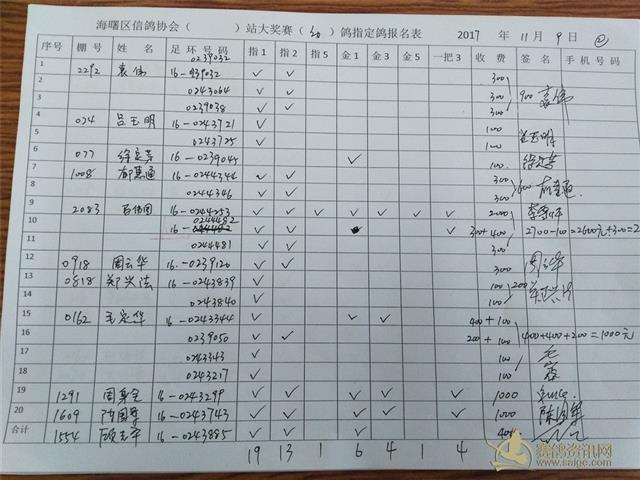 海曙区信鸽协会（ ）站大奖赛（幼）鸽指定鸽报名表 2017 年 11 月 9 日
序号 棚号 姓名 足环号码 指1 指2 指5 金1 金3 金5 一把3 收费 签名 手机号码
0239032
1 2292 袁伟 16-039032 ✓ ✓ 300
2 0243064 ✓ ✓ 300 900
3 0239038 ✓ ✓ 300
4 024 吕玉明 16-0243721 ✓ 100
5 0243725 ✓ 100
6 077 16-0239045 ✓ 100
7 1008 16-0244344 ✓ ✓ 300
8 0244346 ✓ ✓ 300
9 2083 16-0244253 ✓ ✓ ✓ ✓ ✓ ✓ ✓ 2000
0244482
10 16- ✓ ✓ ✓ 300+400 2700-100=2600元+300=2
11 0244481 ✓ ✓ 300
12 0918 周云华 16-0239120 ✓ ✓ 300
13 0818 郑兴法 16-0243839 ✓ 100
14 0243840 ✓ 100
15 0162 毛定华 16-0243344 ✓ ✓ ✓ 400+100
16 0239050 ✓ ✓ 200+100 400+400+200=1000元
17 0243343 ✓ 100
18 0243217 ✓ 100
19 1291 16-0243299 ✓ ✓ ✓ ✓ ✓ 1000
20 1609 16-0243743 ✓ ✓ ✓ ✓ ✓ 1000
合计 1554 16-0243885 ✓ ✓ ✓ 400
19 13 1 6 4 1 4
赛鸽资讯网
www.saige.com